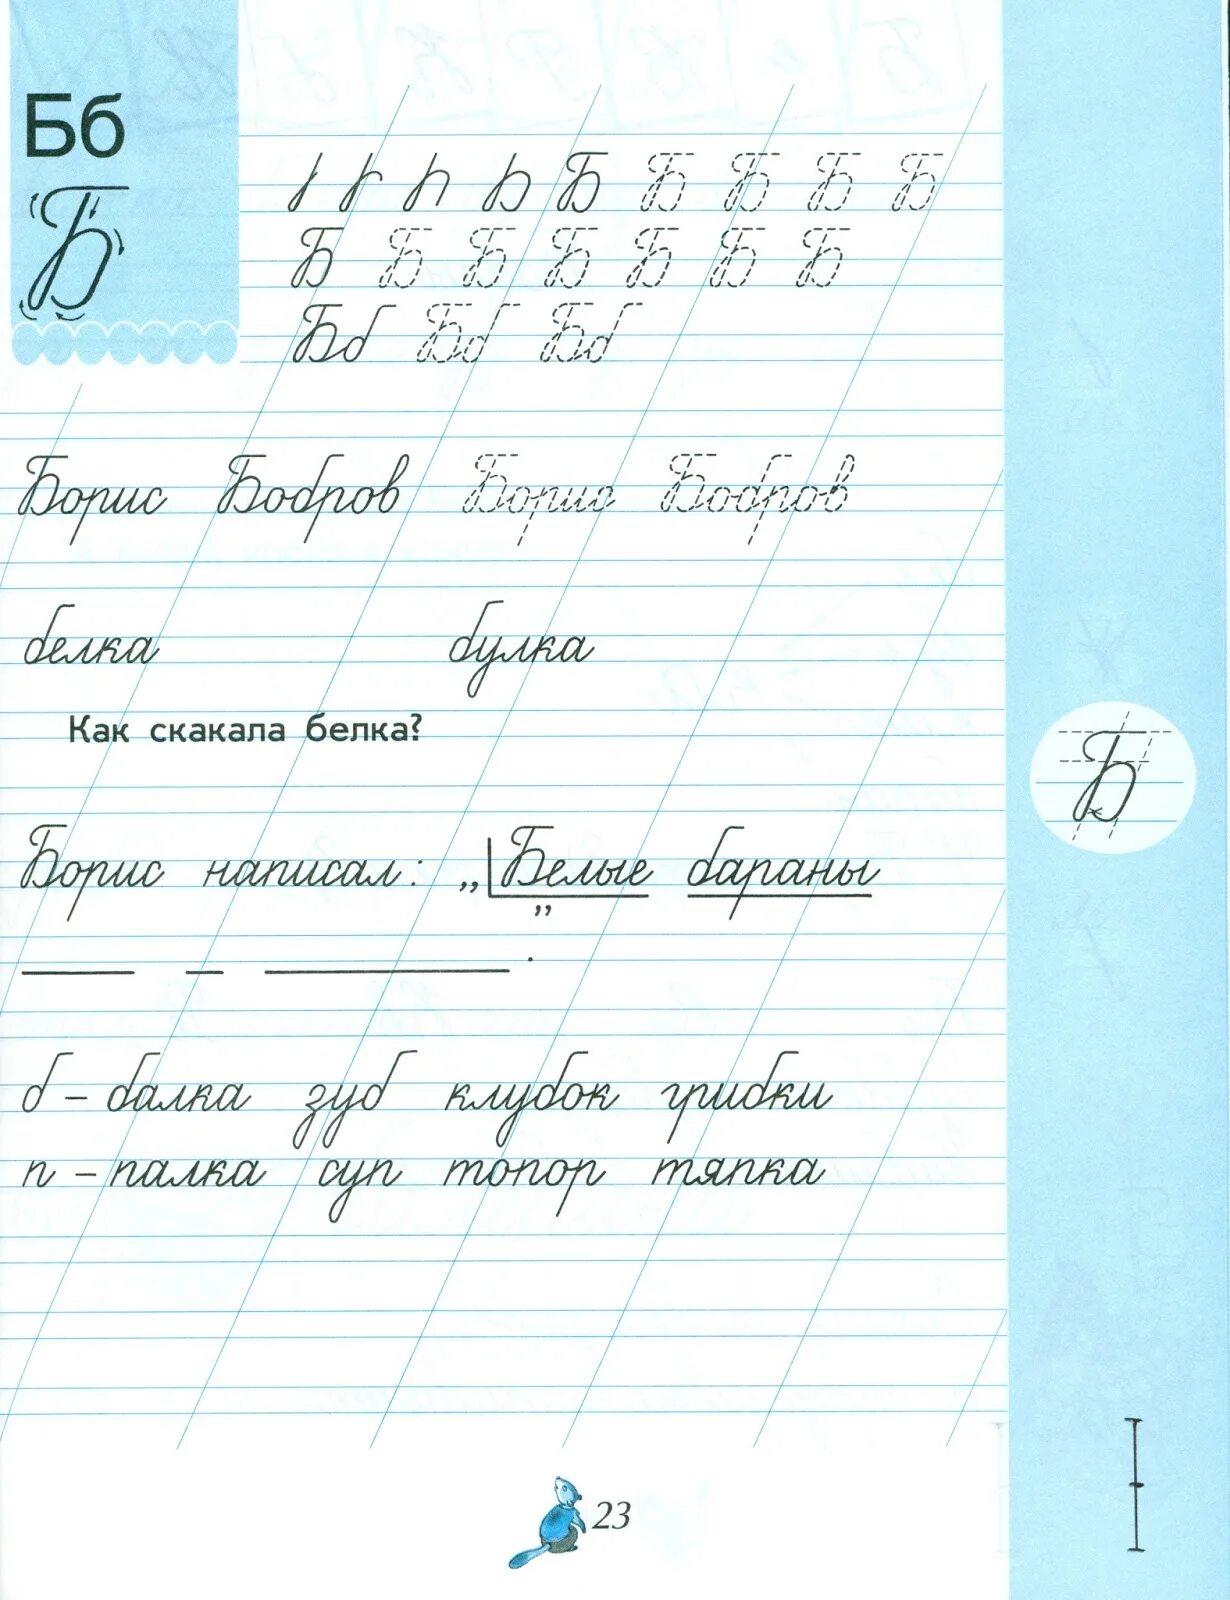 Бб
Б
Б Б Б Б Б
Б Б Б Б Б Б Б
Бб Бб Бб
Борис Бобров Борис Бобров
белка булка
Как скакала белка?
Б
Борис написал: „Белые бараны
”
.
б – балка зуб клубок грибки
п – палка суп топор тяпка
23